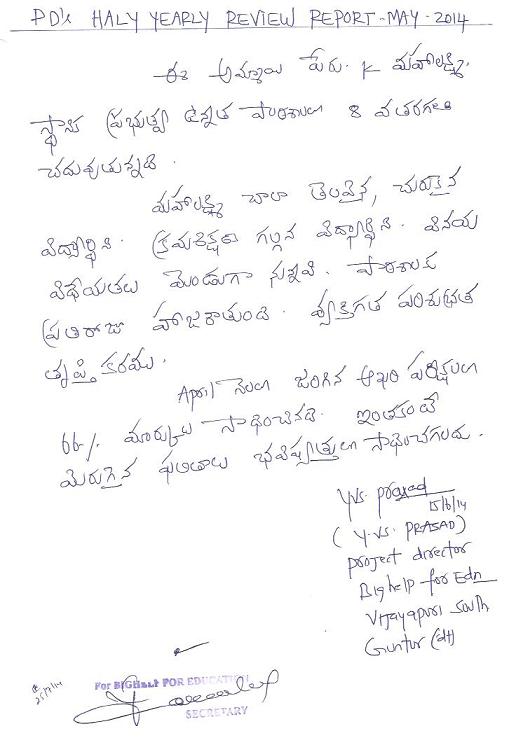 PD's HALY YEARLY REVIEW REPORT - MAY - 2014
ఈ అమ్మాయి పేరు. K మహాలక్ష్మి.
స్థానిక ప్రభుత్వ ఉన్నత పాఠశాలలో 8 వ తరగతి
చదువుతున్నది.
మహాలక్ష్మి చాలా తెలివైన, చురుకైన
విద్యార్థిని. క్రమశిక్షణ గల్గిన విద్యార్థిని. వినయ
విధేయతలు మెండుగా నున్నవి. పాఠశాలకు
ప్రతిరోజు హాజరౌతుంది. వ్యక్తిగత పరిశుభ్రత
తృప్తి కరము.
April నెలలో జరిగిన ఆఖరి పరీక్షలలో
66% మార్కులు సాధించినది. ఇంతకంటే
మెరుగైన ఫలితాలు భవిష్యత్తులో సాధించగలదు.
Y.VS. Prasad
15/6/14
(Y.VS. PRASAD)
project director
Bighelp for Edn
Vijayapuri South
Guntur (dt)
For BIGHELP FOR EDUCATION
25/7/14
SECRETARY